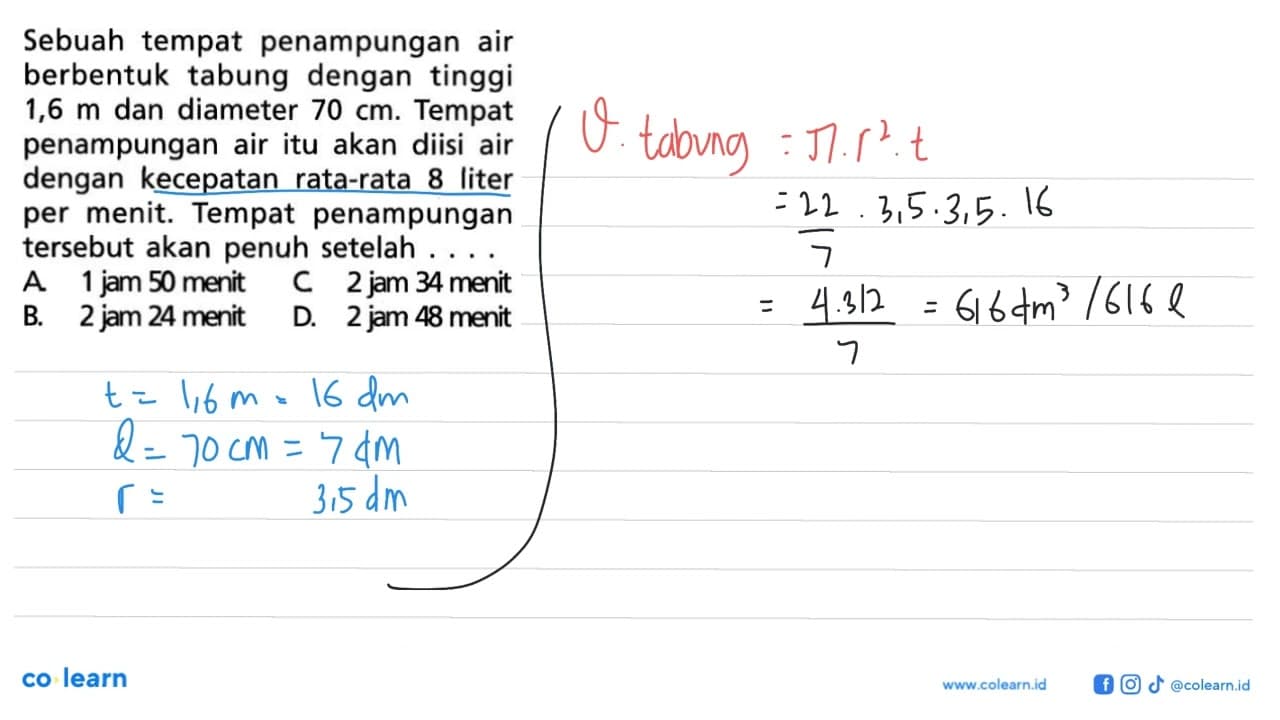 Sebuah tempat penampungan air
berbentuk tabung dengan tinggi
1,6 m dan diameter 70 cm. Tempat
penampungan air itu akan diisi air
dengan kecepatan rata-rata 8 liter
per menit. Tempat penampungan
tersebut akan penuh setelah . . . .
A. 1 jam 50 menit C 2 jam 34 menit
B. 2 jam 24 menit D. 2 jam 48 menit
t = 1,6 m = 16 dm
d = 70 cm = 7 dm
r = 3,5 dm
V. tabung = π . r² . t
= 22/7 . 3,5 . 3,5 . 16
= 4.312/7 = 616 dm³ / 616 l
co learn
www.colearn.id
@colearn.id